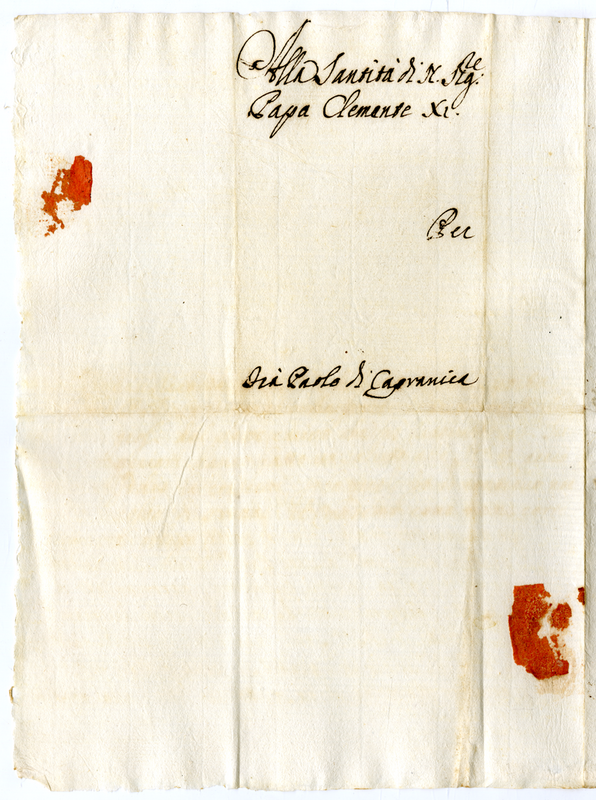 Alla Santità di N. Sig.re
Papa Clemente XI.
Per
Gia Paolo di Capranica